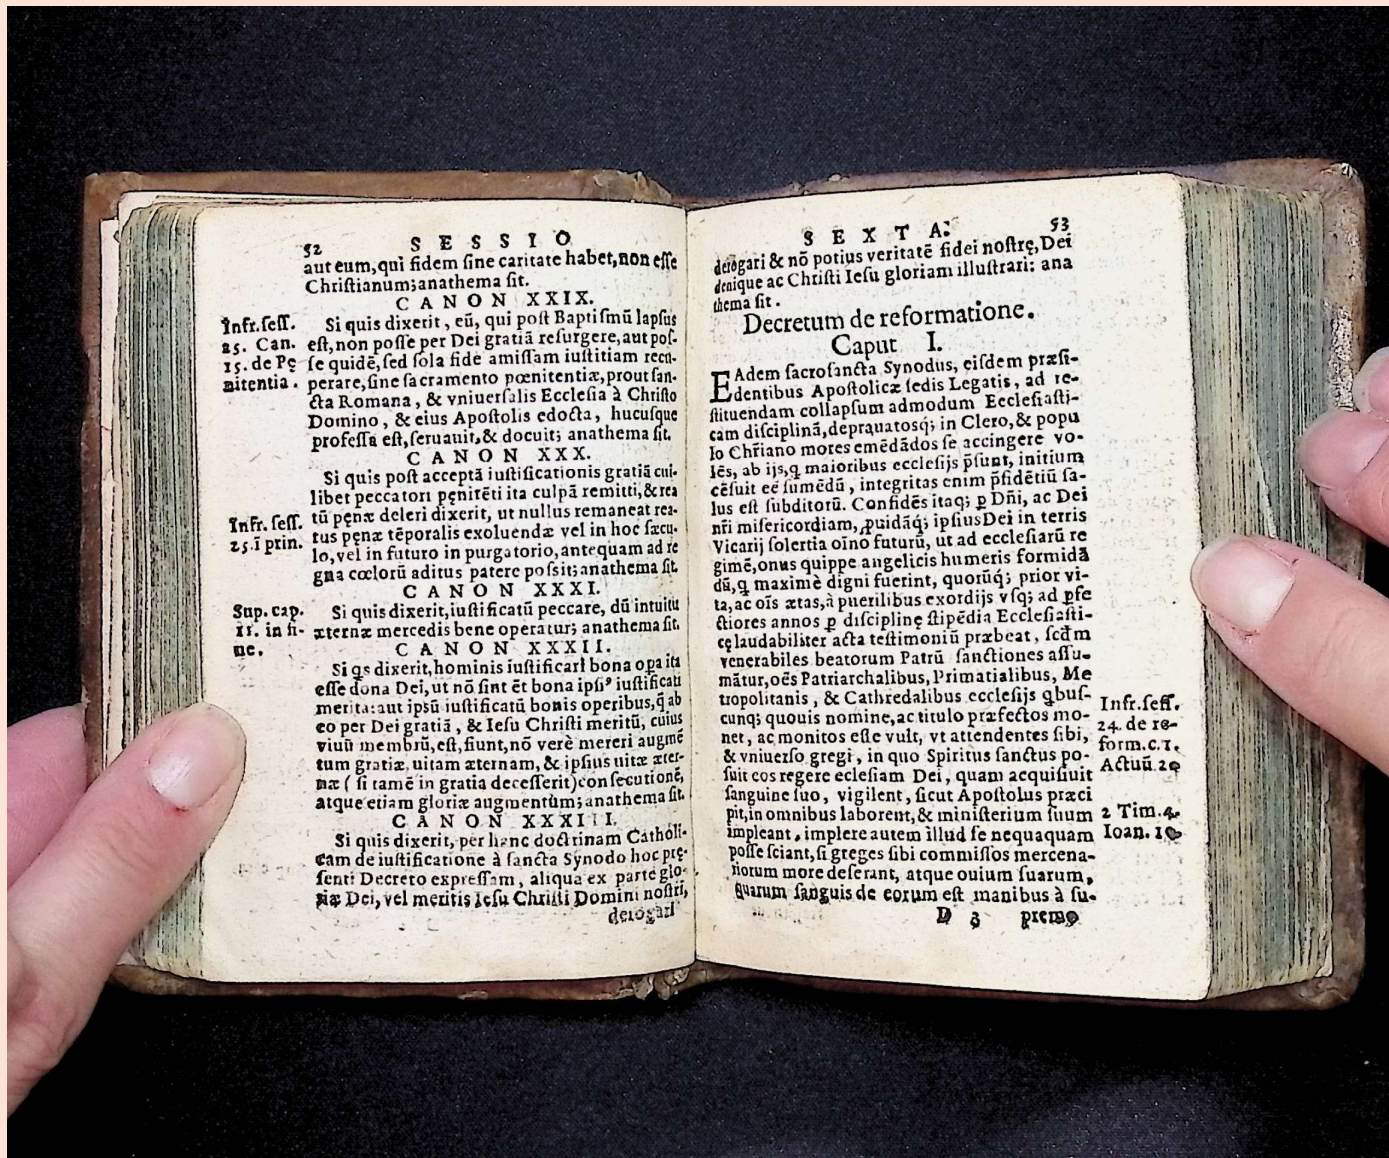 52 SESSIO
aut eum, qui fidem sine caritate habet, non esse
Christianum; anathema sit.
CANON XXIX.
Infr. sess.
25. Can.
15. de Pę
nitentia.
Si quis dixerit, eũ, qui post Baptismũ lapsus
est, non posse per Dei gratiã resurgere, aut pos-
se quidẽ, sed sola fide amissam iustitiam recu-
perare, sine sacramento pœnitentiæ, prout san-
cta Romana, & vniuersalis Ecclesia à Christo
Domino, & eius Apostolis edocta, hucusque
professa est, seruauit, & docuit; anathema sit.
CANON XXX.
Si quis post acceptã iustificationis gratiã cui-
libet peccatori pęnitẽti ita culpã remitti, & rea
tũ pęnæ deleri dixerit, ut nullus remaneat rea-
tus pęnæ tẽporalis exoluendæ vel in hoc sæcu-
lo, vel in futuro in purgatorio, antequam ad re
gna cœlorũ aditus patere possit; anathema sit.
Infr. sess.
25. ĩ prin.
CANON XXXI.
Sup. cap.
11. in fi-
ne.
Si quis dixerit, iustificatũ peccare, dũ intuitu
æternæ mercedis bene operatur; anathema sit.
CANON XXXII.
Si qs dixerit, hominis iustificati bona opa ita
esse dona Dei, ut nõ sint ẽt bona ipsiꝰ iustificati
merita: aut ipsũ iustificatũ bonis operibus, q̃ ab
eo per Dei gratiã, & Iesu Christi meritũ, cuius
viuũ membrũ, est, fiunt, nõ verè mereri augmẽ
tum gratiæ, uitam æternam, & ipsius uitæ æter-
næ (si tamẽ in gratia decesserit) consecutionẽ,
atque etiam gloriæ augmentum; anathema sit.
CANON XXXIII.
Si quis dixerit, per hanc doctrinam Catholi-
cam de iustificatione à sancta Synodo hoc prę-
senti Decreto expressam, aliqua ex parte glo-
riæ Dei, vel meritis Iesu Christi Domini nostri,
derogari
SEXTA. 53
derogari & nõ potius veritatẽ fidei nostrę, Dei
denique ac Christi Iesu gloriam illustrari: ana
thema sit.
Decretum de reformatione.
Caput I.
EAdem sacrosancta Synodus, eisdem præsi-
dentibus Apostolicæ sedis Legatis, ad re-
stituendam collapsum admodum Ecclesiasti-
cam disciplinã, deprauatosq; in Clero, & popu
lo Chr̃iano mores emẽdãdos se accingere vo-
lẽs, ab ijs, q maioribus ecclesijs p̃sunt, initium
cẽsuit eẽ sumẽdũ, integritas enim p̃sidẽtiũ sa-
lus est subditorũ. Confidẽs itaq; ꝑ Dñi, ac Dei
nr̃i misericordiam, ꝓuidãq; ipsius Dei in terris
Vicarij solertia oĩno futurũ, ut ad ecclesiarũ re
gimẽ, onus quippe angelicis humeris formidã
dũ, q maximè digni fuerint, quorũq; prior vi-
ta, ac oĩs ætas, à puerilibus exordijs vsq; ad ꝑfe
ctiores annos ꝑ disciplinę stipẽdia Ecclesiasti-
cę laudabiliter acta testimoniũ præbeat, scd̃m
venerabiles beatorum Patrũ sanctiones assu-
mãtur, oẽs Patriarchalibus, Primatialibus, Me
tropolitanis, & Cathredalibus ecclesijs qbus-
cunq; quouis nomine, ac titulo præfectos mo-
net, ac monitos esse vult, vt attendentes sibi,
& vniuerso gregi, in quo Spiritus sanctus po-
suit eos regere eclesiam Dei, quam acquisiuit
sanguine suo, vigilent, sicut Apostolus præci
pit, in omnibus laborent, & ministerium suum
impleant, implere autem illud se nequaquam
posse sciant, si greges sibi commissos mercena-
riorum more deserant, atque ouium suarum,
quarum sanguis de eorum est manibus à su-
Infr. sess.
24. de re-
form. c. 1.
Actuũ. 20
2 Tim. 4.
Ioan. 10
D 3 premo